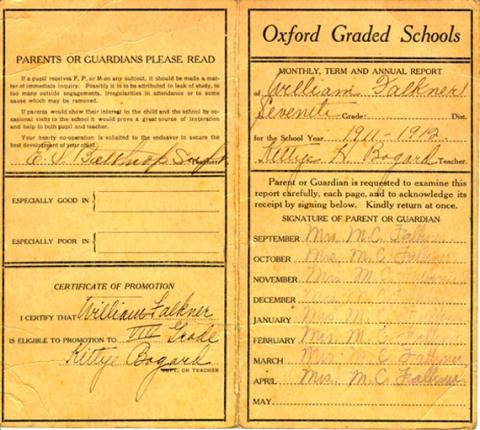 PARENTS OR GUARDIANS PLEASE READ
If a pupil receives F, P, or M on any subject, it should be made a mat-
ter of immediate inquiry. Possibly it is to be attributed to lack of study, to
too many outside engagements. Irregularities in attendance or to some
cause which may be removed.
If parents would show their interest in the child and the school by oc-
casional visits to the school it would prove a great source of inspiration
and help to both pupil and teacher.
Your hearty co-operation is solicited to the endeavor to secure the
best development of your child.
ESPECIALLY GOOD IN
ESPECIALLY POOR IN
CERTIFICATE OF PROMOTION
I CERTIFY THAT William Falkner
IS ELIGIBLE TO PROMOTION TO VIII Grade
Kittye Bogard
SUPT. OR TEACHER
Oxford Graded Schools
MONTHLY, TERM AND ANNUAL REPORT
of William Falkner
Seventh Grade Dist.
for the School Year 1911-1912
Kittye H. Bogard Teacher.
Parent or Guardian is requested to examine this
report carefully, each page, and to acknowledge its
receipt by signing below. Kindly return at once.
SIGNATURE OF PARENT OR GUARDIAN
SEPTEMBER Mrs. M. C.
OCTOBER Mrs. M. C. Falkner
NOVEMBER Mrs. M. C.
DECEMBER
JANUARY
FEBRUARY Mrs. M. C.
MARCH Mrs. M. C. Falkner
APRIL Mrs. M. C. Falkner
MAY